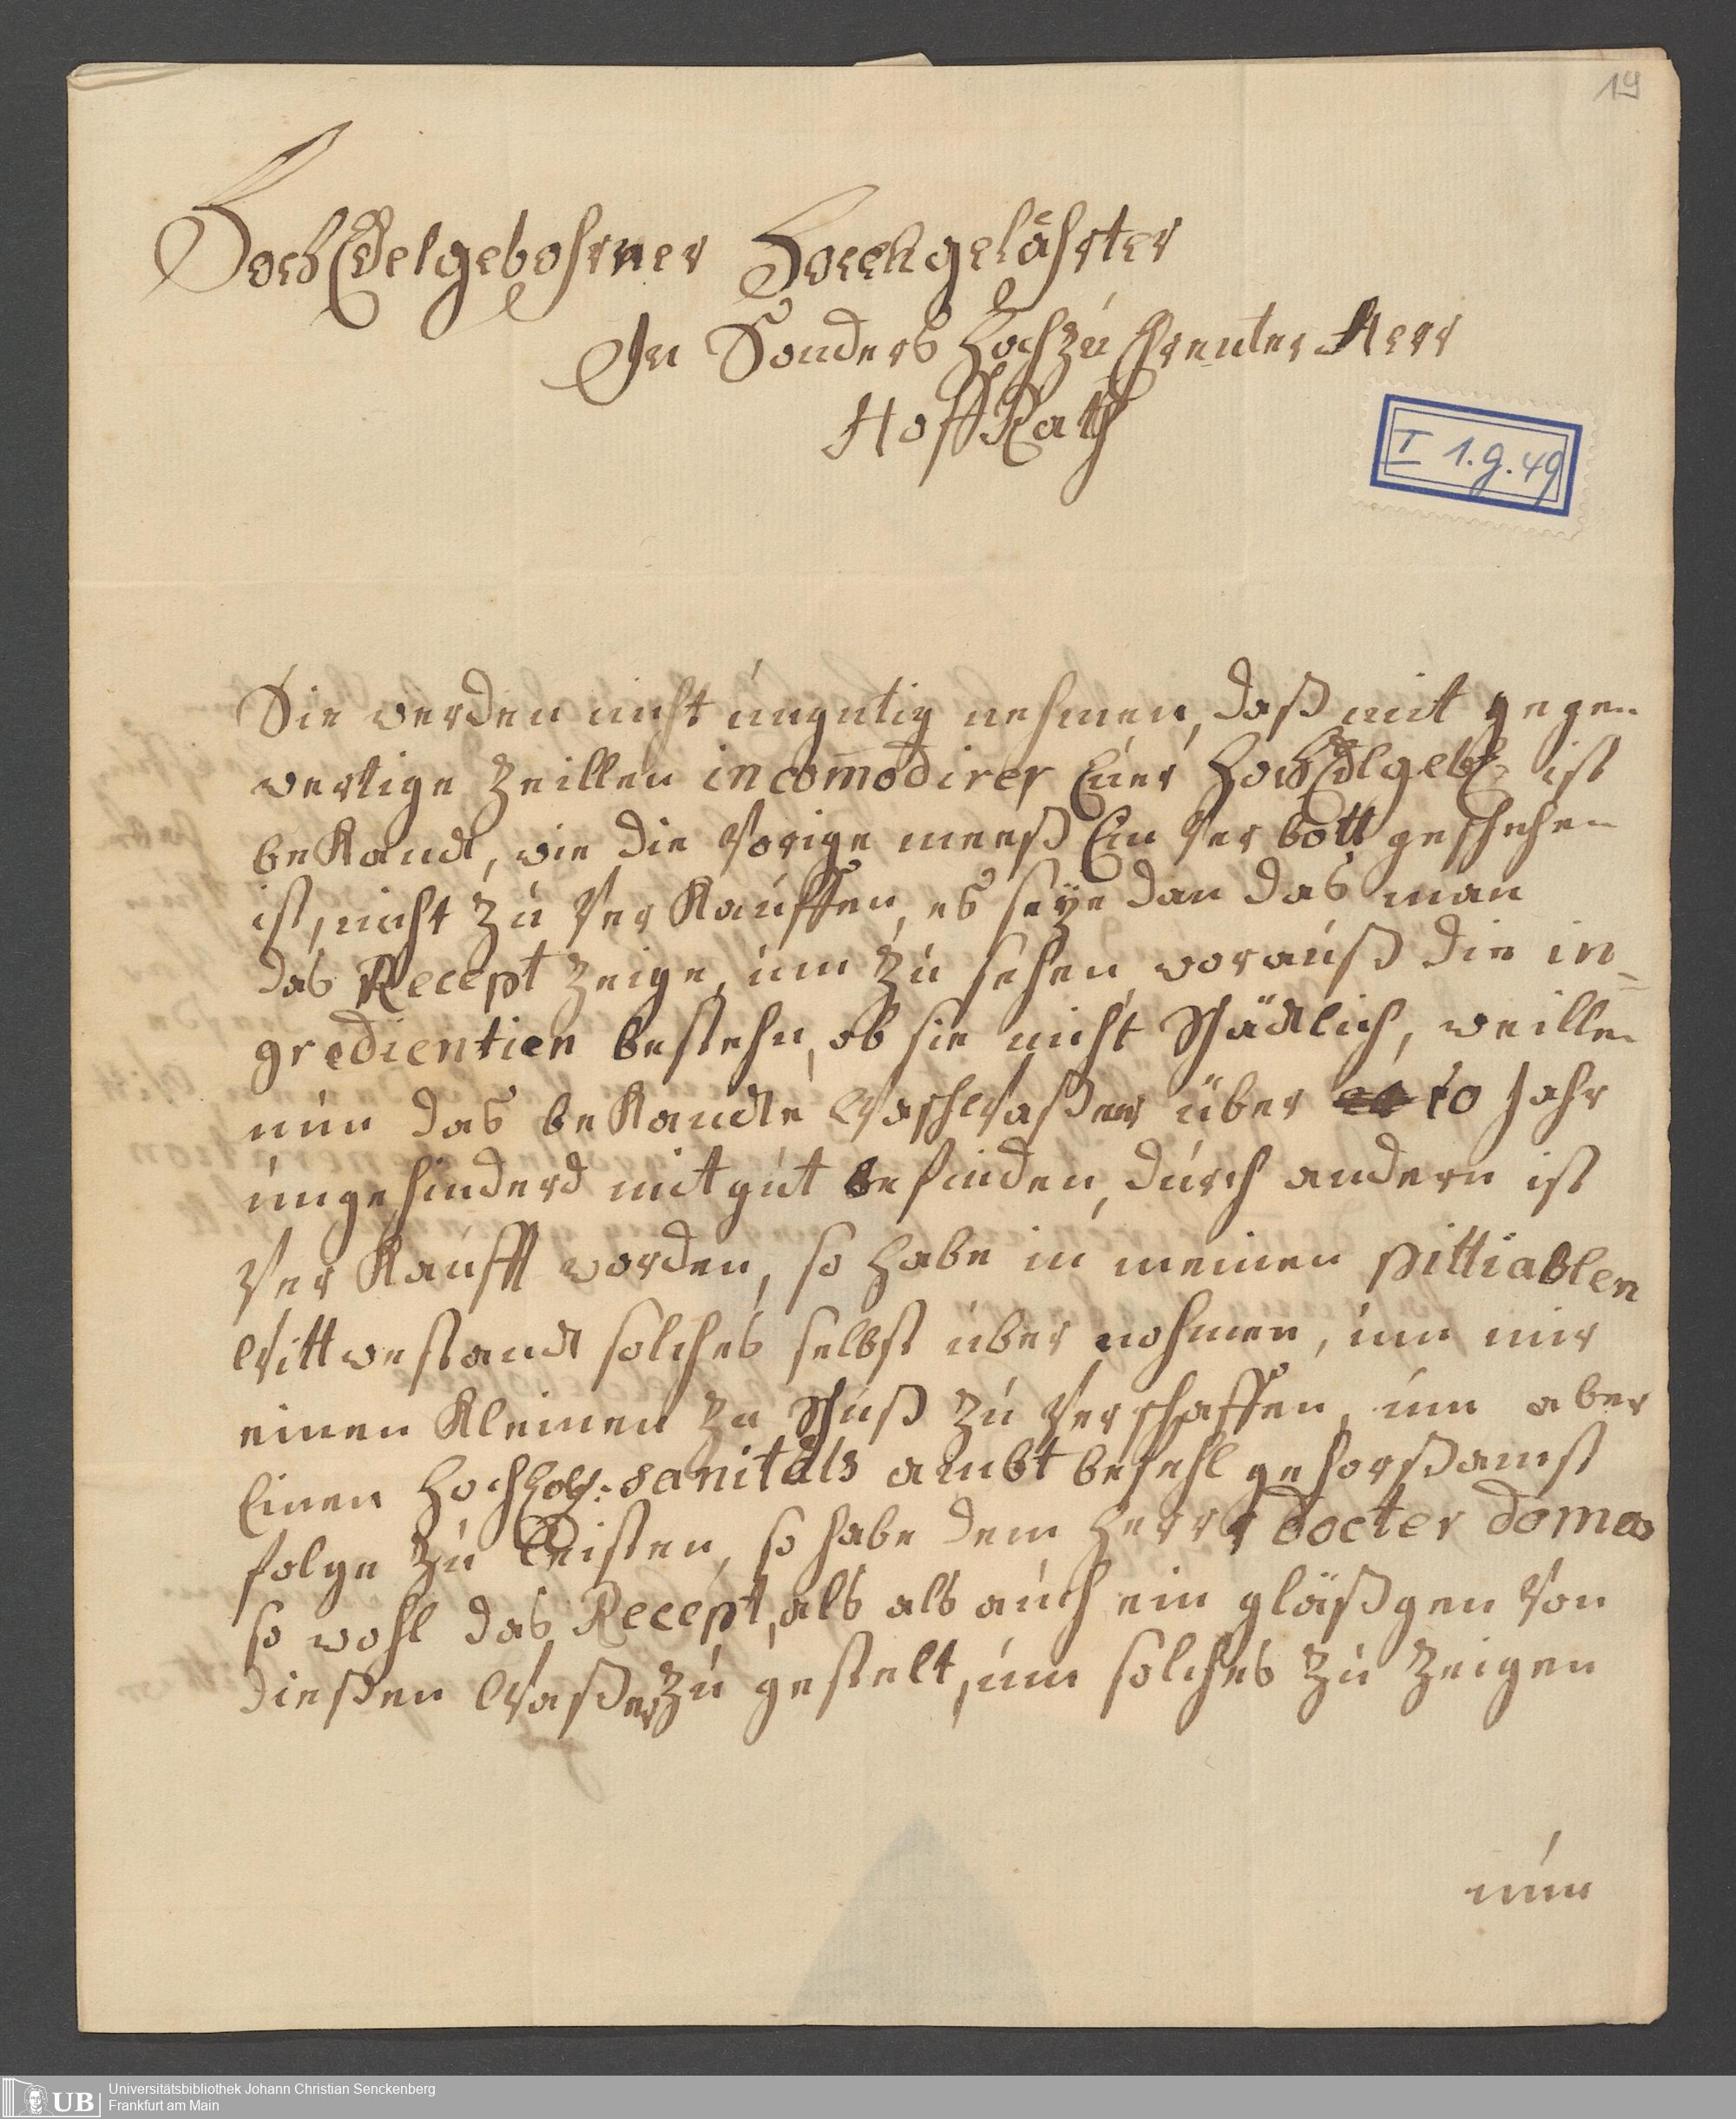 19
HochEdelgebohrner Hochgelährter
In Sonders Hochzu Ehrenter Herr
HoffRath
I 1.g.49
Sie werden nicht ungutig nehmen, daß mit gegen
wertige Zeillen incomodirer Euer HochEdlgeb ist
beKandt, wie die Vorige meeß Ein Verbott geschehen
ist, nicht zu VerKauffen, es seye dan das man
das Recept zeige, um zu sehen worauß die in=
gredientien bestehn, ob sie nicht Schädlich, weillen
nun das beKandte WaschWaßer über 10 Jahr
ungehinderd mit gut befinden, durch andern ist
VerKaufft worden, so habe in meinen pittiablen
Wittwestandt solches selbst über nohmen, um mir
einen Kleinen Zu Schuß zu Verschaffen, um aber
Einen Hochlobl: sanitäts ambt befehl gehorßamst
folge zu Leisten, so habe dem Herrn docter
so wohl das Recept, als als auch ein gläßgen Von
dießen Waßer zu gestelt, um solches zu Zeigen
nun
UB
Universitätsbibliothek Johann Christian Senckenberg
Frankfurt am Main